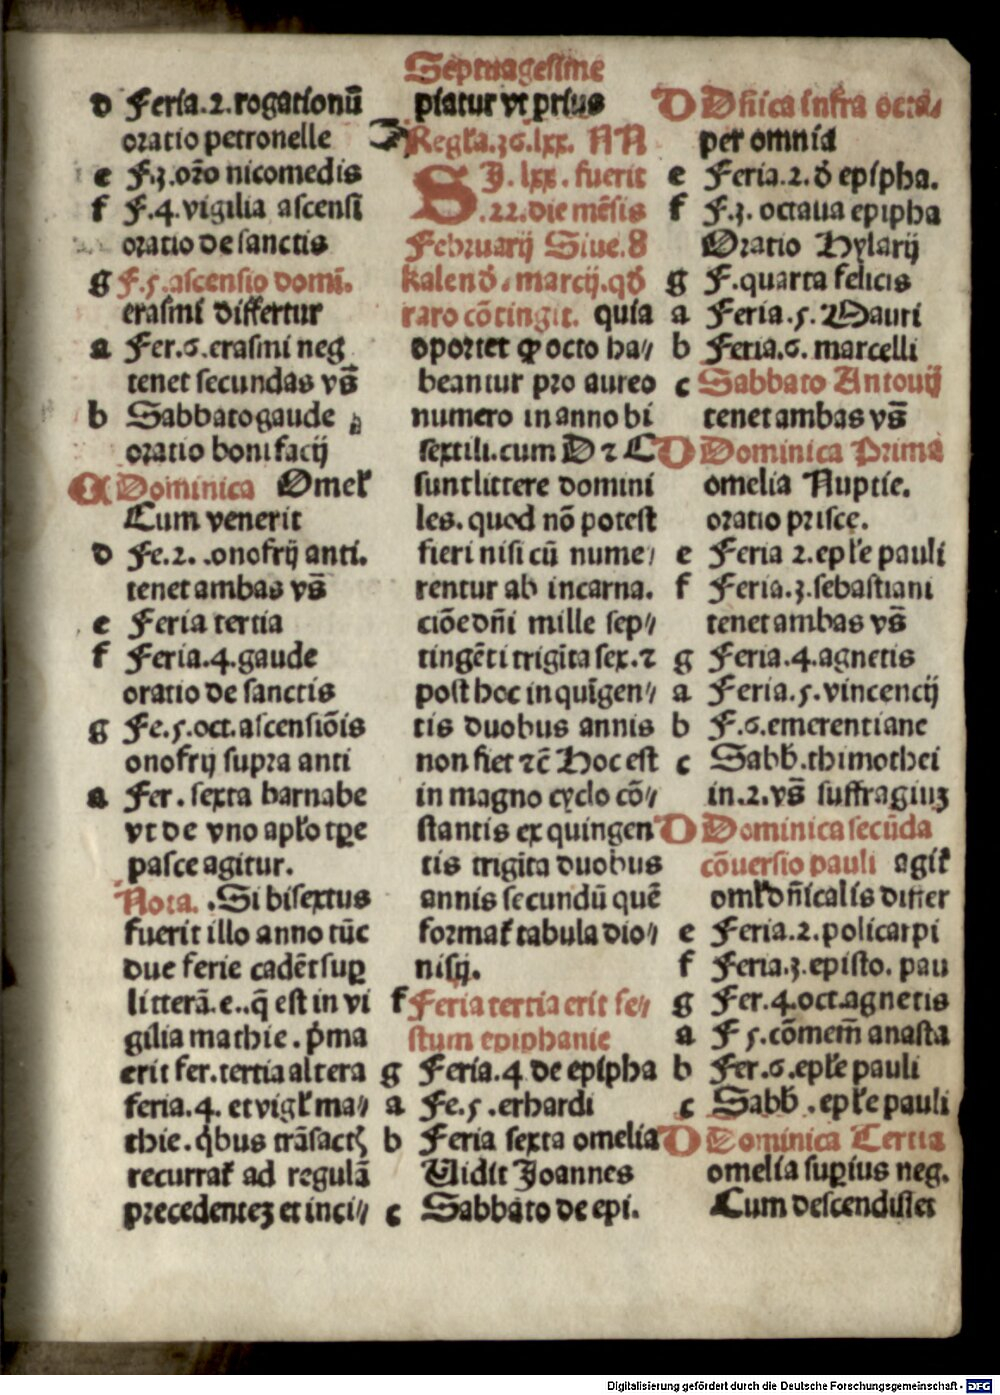 Septuagesime
d Feria.2.rogationū
oratio petronelle
e F.3.oro nicomedis
f F.4.vigilia ascensi
oratio de sanctis
g F.5.ascensio domi.
erasmi differtur
a Fer.6.erasmi neg
tenet secundas vs̄
b Sabbato gaude
oratio bonifacij
Dominica Omeł
Cum venerit
d Fe.2..onofrij anti.
tenet ambas vs̄
e Feria tertia
f Feria.4.gaude
oratio de sanctis
g Fe.5.oct.ascensiōis
onofrij supra anti
a Fer.sexta barnabe
vt de vno apło tꝑe
pasce agitur.
Nota. .Si bisextus
fuerit illo anno tūc
due ferie cadēt suꝑ
litterā.e..q̄ est in vi
gilia mathie.p̄ma
erit fer.tertia altera
feria.4. et vigł ma⸗
thie.q̇bus trāsactꝭ
recurraꝉ ad regulā
precedentez et inci⸗
piatur vt prius
Regła.36.lxx. NN
SJ.lxx.fuerit
.22.die mēsis
Februarij Siue.8
kalenđ.marcij.qđ
raro cōtingit. quia
oportet ꝙ octo ha⸗
beantur pro aureo
numero in anno bi
sextili.cum D ⁊ C
sunt littere domini
les.quod nō potest
fieri nisi cū nume⸗
rentur ab incarna.
ciōe dn̄i mille sep⸗
tingēti trigīta sex.⁊
post hoc in quīgen⸗
tis duobus annis
non fiet ⁊c̄ Hoc est
in magno cyclo cō⸗
stantis ex quingen
tis trigīta duobus
annis secundū quē
formaꝉ tabula dio⸗
nisij.
f Feria tertia erit fe⸗
stum epiphanie
g Feria.4 de epipha
a Fe.5.erhardi
b Feria sexta omelia
Uidit Joannes
c Sabbato de epi.
D Dn̄ica infra octa⸗
per omnia
e Feria.2.đ epipha.
f F.3. octaua epipha
Oratio Hylarij
g F.quarta felicis
a Feria.5.Mauri
b Feria.6.marcelli
c Sabbato Antonij
tenet ambas vs̄
D Dominica Prima
omelia Nuptie.
oratio prisce.
e Feria 2.epłe pauli
f Feria.3.sebastiani
tenet ambas vs̄
g Feria.4.agnetis
a Feria.5.vincencij
b F.6.emerentiane
c Sabb̄.thimothei
in.2.vs̄ suffragiuz
D Dominica secūda
cōuersio pauli agiꝉ
omł dn̄icalis differ
e Feria.2.policarpi
f Feria.3.episto.pau
g Fer.4.oct.agnetis
a F 5.cōmem̄ anasta
b Fer.6.epłe pauli
c Sabb̄.epłe pauli
D Dominica Tertia
omelia suꝑius neg.
Cum descendisset
Digitalisierung gefördert durch die Deutsche Forschungsgemeinschaft - DFG